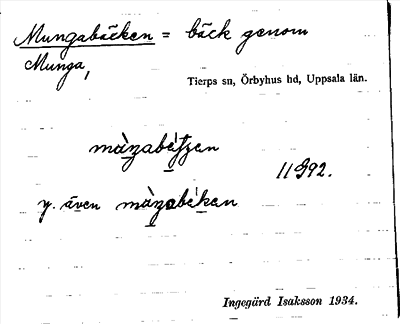 Mungabäcken = bäck genom
Munga,
Tierps sn, Örbyhus hd, Uppsala län.
y. även
Ingegärd Isaksson 1934.